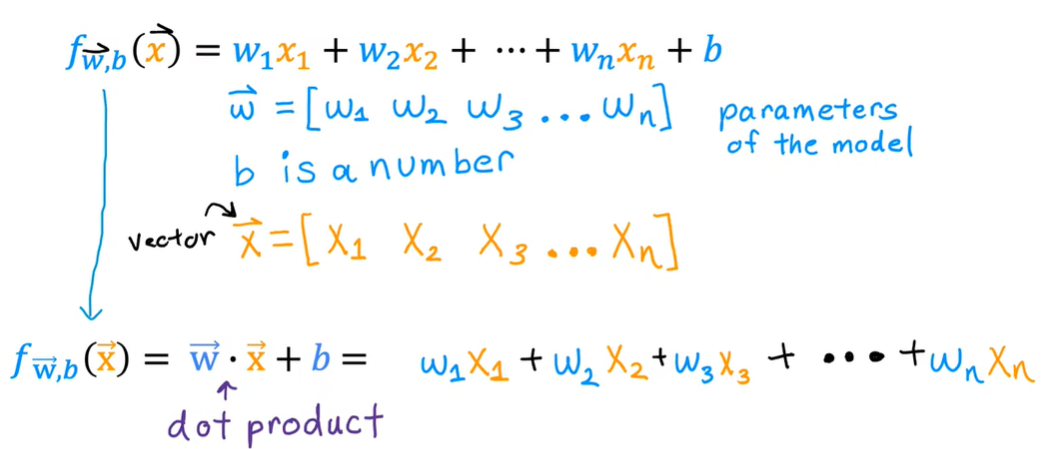 f_{\vec{w},b}(\vec{x}) = w_1x_1 + w_2x_2 + ⋯ + w_nx_n + b
\vec{w} = [w_1 w_2 w_3 ... w_n] parameters of the model
b is a number
vector \vec{x} = [x_1 x_2 x_3 ... x_n]
f_{\vec{w},b}(\vec{x}) = \vec{w} · \vec{x} + b = w_1x_1 + w_2x_2 + w_3x_3 + ... + w_nx_n
dot product